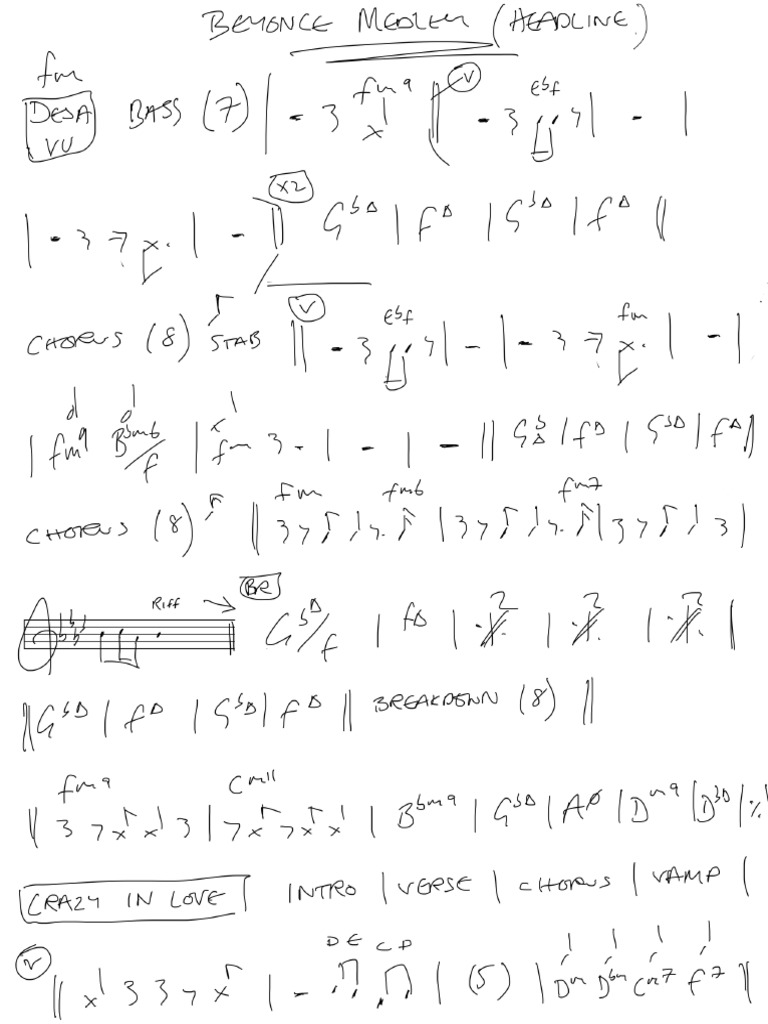 BEYONCE MEDLEY (HEADLINE)
fm
DEJA VU BASS (7) | - 3 fm9 || V - 3 Ebf | - |
| - 3 7 x. | - || X2 GbΔ | FΔ | GbΔ | FΔ ||
CHORUS (8) STAB || V - 3 Ebf | - | - 3 7 fm x. | - |
| fm9 Bbm6/f | fm 3 - | - | - || GbΔ | FΔ | GbΔ | FΔ ||
CHORUS (8) || fm fm6 | fm7 | 3 |
RIFF → BR GbΔ/f | FΔ | 2 | 2 | 2 |
|| GbΔ | FΔ | GbΔ | FΔ || BREAKDOWN (8) ||
|| fm9 3 7 x x 3 | Cm11 7 x 7 x x | Bbm9 | GbΔ | AØ | Dm9 | DbΔ | %
CRAZY IN LOVE INTRO | VERSE | CHORUS | VAMP |
V || x 3 3 7 x | - DE CD | (5) | Dm Dbm Cm7 F7 ||